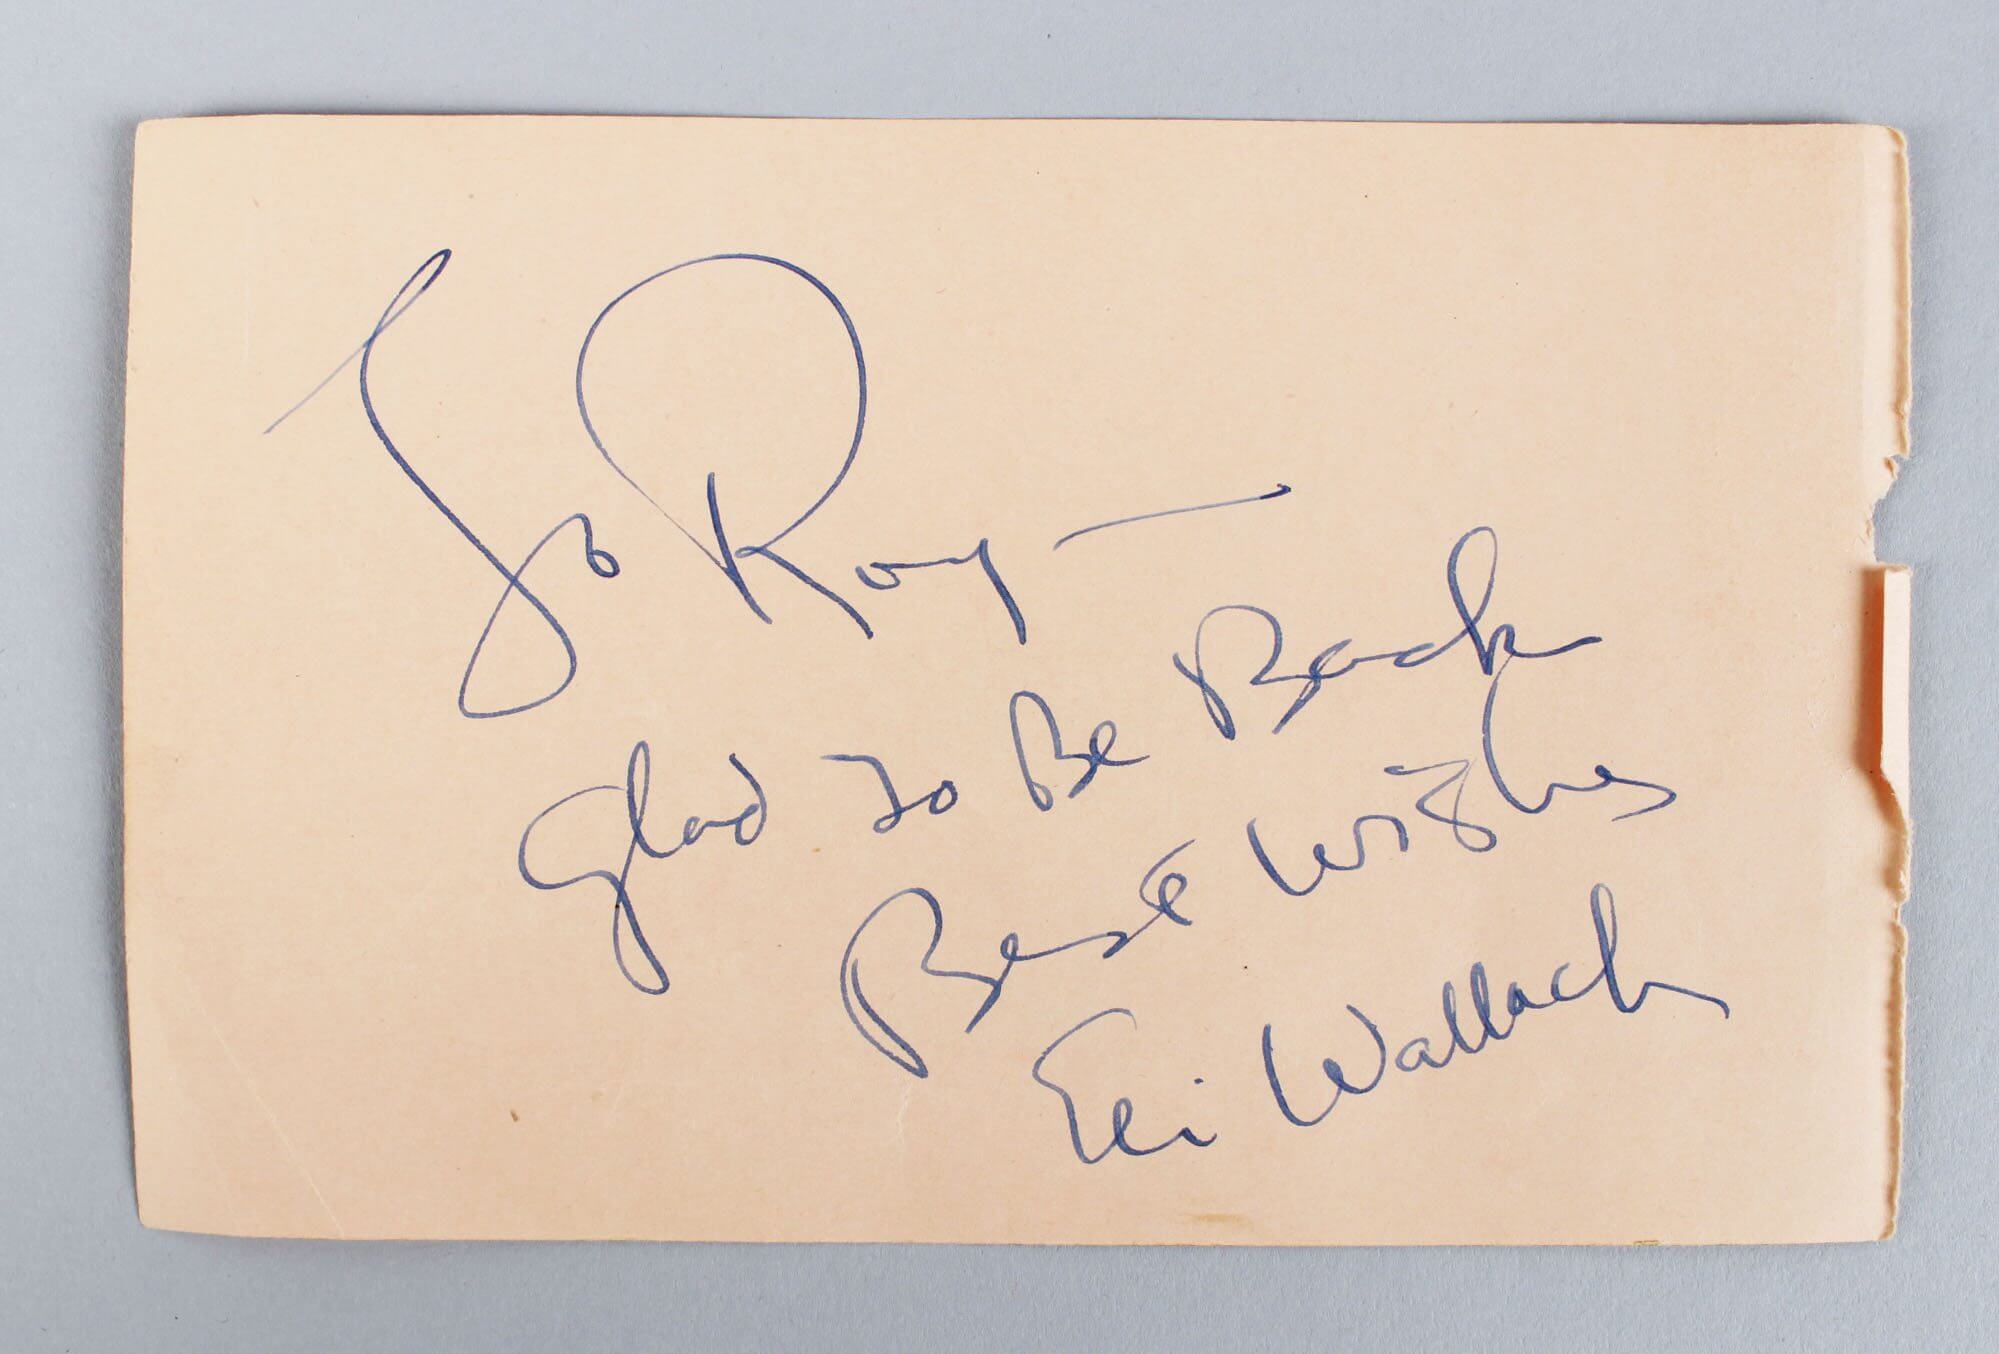 To Roy —
Glad To Be Back
Best Wishes
Eli Wallach